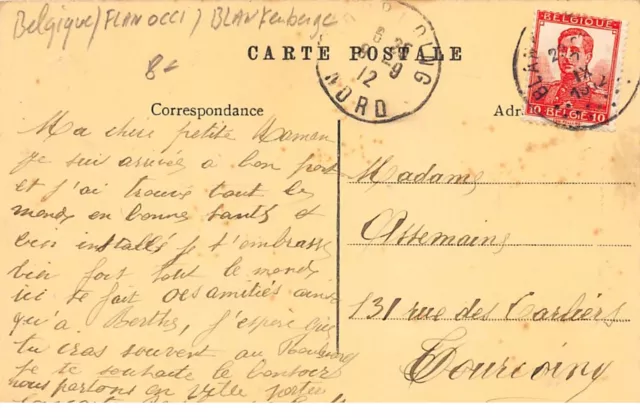 Belgique / FLAN OCCI / BLANKenberge
8-
CARTE POSTALE
NORD
12
BELGIQUE
10 BELGIË 10
Correspondance
Ma chère petite Maman
Je suis arrivée à bon port
et j'ai trouvé tout le
monde en bonne santé et
bien installés je t'embrasse
bien fort tout le monde
ici te fait des amitiés ainsi
qu'à Berthe, j'espère que
tu iras souvent au
Je te souhaite le bonsoir
nous partons en ville
Madame
Assemaine
131 rue des Carliers
Tourcoing